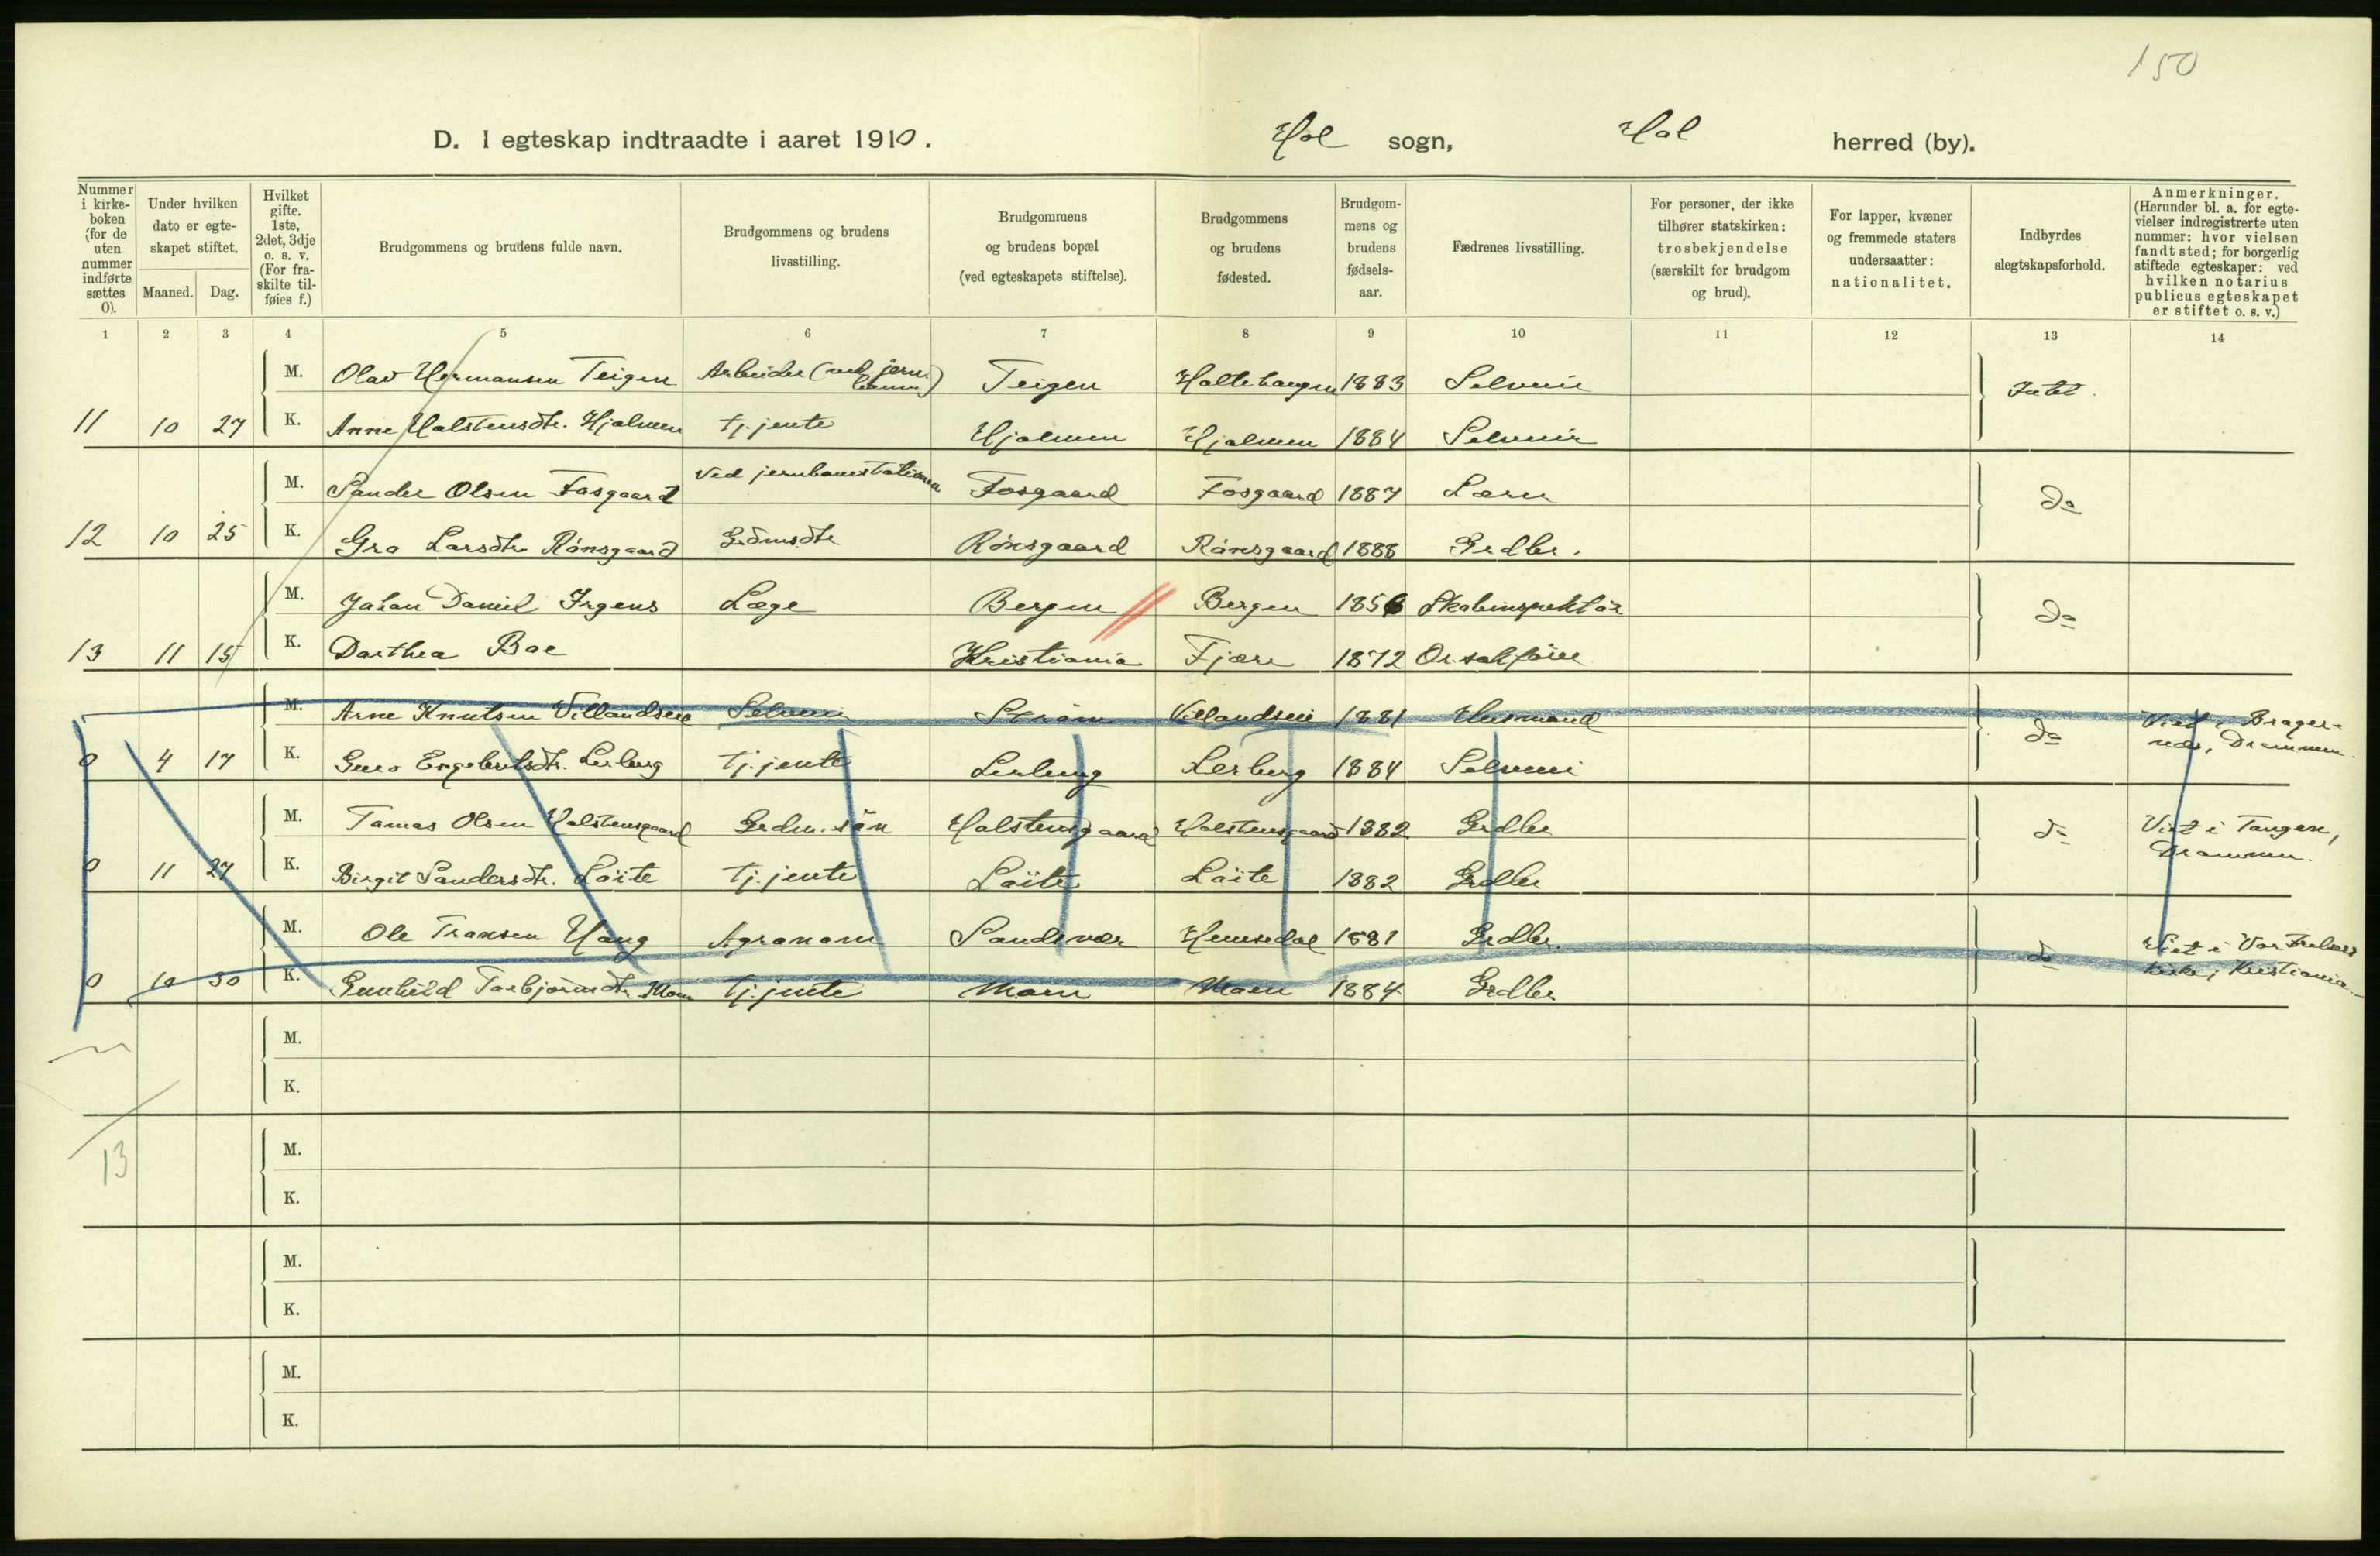 150
D. I egteskap indtraadte i aaret 1910. Hol sogn, Hol herred (by).
Nummer i kirkeboken (for de uten nummer indførte sættes 0).
Under hvilken dato er egteskapet stiftet.
Maaned. Dag.
Hvilket gifte. 1ste, 2det, 3dje o. s. v. (For fraskilte tilføies f.)
Brudgommens og brudens fulde navn.
Brudgommens og brudens livsstilling.
Brudgommens og brudens bopæl (ved egteskapets stiftelse).
Brudgommens og brudens fødested.
Brudgommens og brudens fødselsaar.
Fædrenes livsstilling.
For personer, der ikke tilhører statskirken: trosbekjendelse (særskilt for brudgom og brud).
For lapper, kvæner og fremmede staters undersaatter: nationalitet.
Indbyrdes slegtskapsforhold.
Anmerkninger. (Herunder bl. a. for egtevielser indregistrerte uten nummer: hvor vielsen fandt sted; for borgerlig stiftede egteskaper: ved hvilken notarius publicus egteskapet er stiftet o. s. v.)
1 2 3 4 5 6 7 8 9 10 11 12 13 14
M. Olav Hermansen Teigen Arbeider (ved jernbanen) Teigen Holtehaugen 1883 Selveier Intet.
11 10 27 K. Anne Halstensdtr. Hjelmen tj.jente Hjelmen Hjelmen 1884 Selveier
M. Sander Olsen Fosgaard Ved jernbanestationen Fosgaard Fosgaard 1887 Lærer do
12 10 25 K. Gro Larsdtr Rønsgaard Grdmsdtr Rønsgaard Rønsgaard 1888 Grdbr.
M. Johan Daniel Irgens Læge Bergen Bergen 1856 Skoleinspektør do
13 11 15 K. Dorthea Boe Kristiania Fjære 1872 O.r.sakfører
M. Arne Knutsen Villandseie Selveier Strøm Villandseie 1881 Husmand do Viet i Bragernes, Drammen.
0 4 17 K. Guro Engebretsdtr. Lerberg tj.jente Lerberg Lerberg 1884 Selveier
M. Tomas Olsen Halstensgaard Grdm.søn Halstensgaard Halstensgaard 1882 Grdbr do Viet i Tangen, Drammen.
0 11 27 K. Birgit Sandersdtr. Løite tj.jente Løite Løite 1882 Grdbr
M. Ole Transen Haug Agronom Sandsvær Hemsedal 1881 Grdbr. do Viet i Vor Frelsers kirke i Kristiania.
0 10 30 K. Gunhild Torbjørnsdtr. Moen tj.jente Moen Moen 1884 Grdbr
M.
K.
M.
13
K.
M.
K.
M.
K.